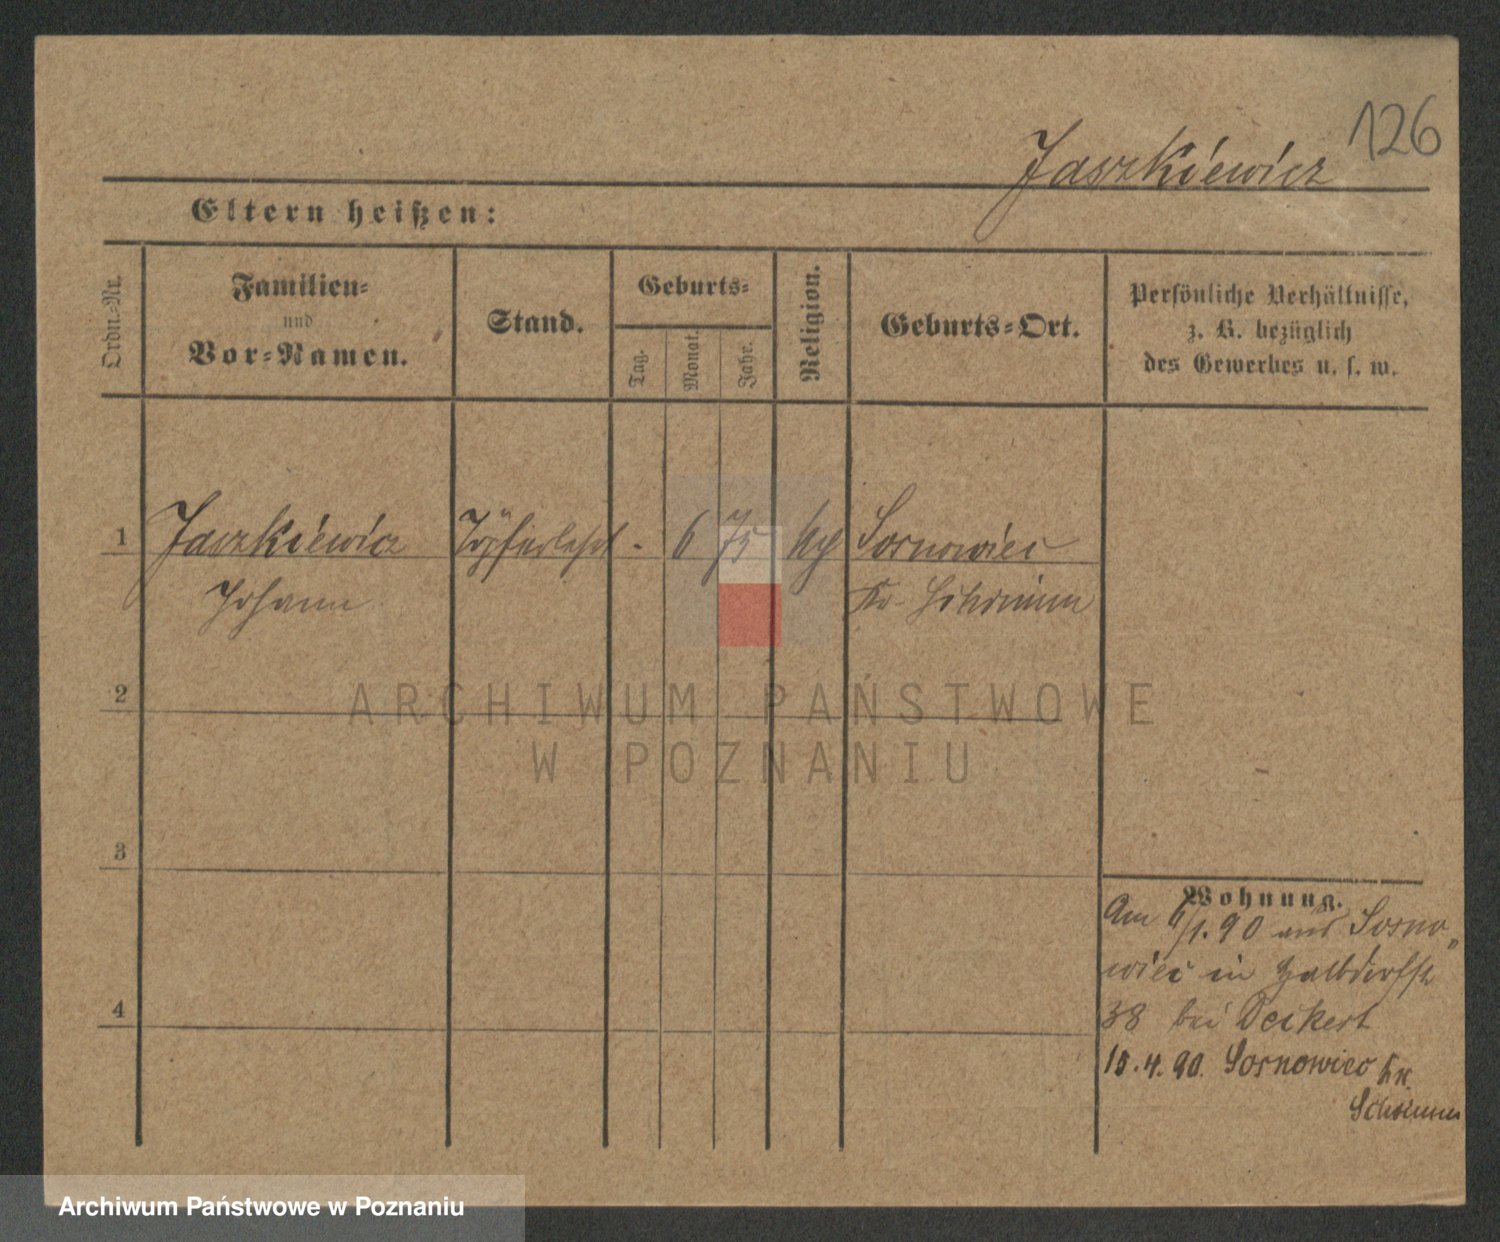 126
Jaszkiewicz
Eltern heißen:
Ordn.-Nr.
Familien-
und
Vor-Namen.
Stand.
Geburts-
Tag.
Monat.
Jahr.
Religion.
Geburts-Ort.
Persönliche Verhältnisse,
z. B. bezüglich
des Gewerbes u. s. w.
1 Jaszkiewicz Töpferlehrl - 6 75 kth Sosnowiec
Johann Kr. Schrimm
ARCHIWUM PAŃSTWOWE
W POZNANIU
2
3
4
Wohnung.
Am 6/1.90 aus Sosno„
wiec in Halbdorfstr
38 bei Deikert
15.4.90. Sosnowiec Kr.
Schrimm
Archiwum Państwowe w Poznaniu